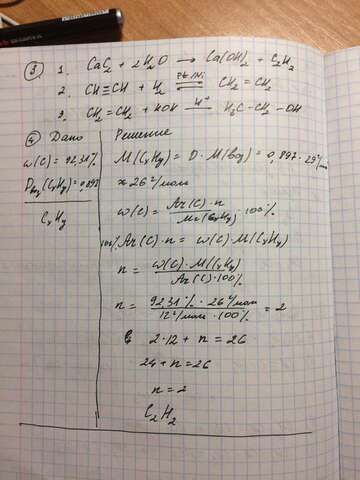 ③ 1. CaC₂ + 2H₂O → Ca(OH)₂ + C₂H₂
2. CH≡CH + H₂ ⇌ CH₂=CH₂
Pt/Ni
3. CH₂=CH₂ + HOH → H₃C-CH₂-OH
H⁺
④ Дано
Решение
ω(C) = 92,31%
D воз (CxHy) = 0,897
CxHy
M(CxHy) = D · M(воз) = 0,897 · 29 г/моль
≈ 26 г/моль
ω(C) = Ar(C) · n / Mr(CxHy) · 100%
100% Ar(C) · n = ω(C) · M(CxHy)
n = ω(C) · M(CxHy) / Ar(C) · 100%
n = 92,31% · 26 г/моль / 12 г/моль · 100% = 2
2·12 + n = 26
24 + n = 26
n = 2
C₂H₂